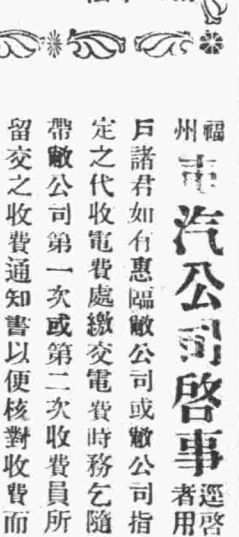 福州電汽公司啓事
逕啓
者用
戶諸君如有惠臨敝公司或敝公司指
定之代收電費處繳交電費時務乞隨
帶敝公司第一次或第二次收費員所
留交之收費通知書以便核對收費而